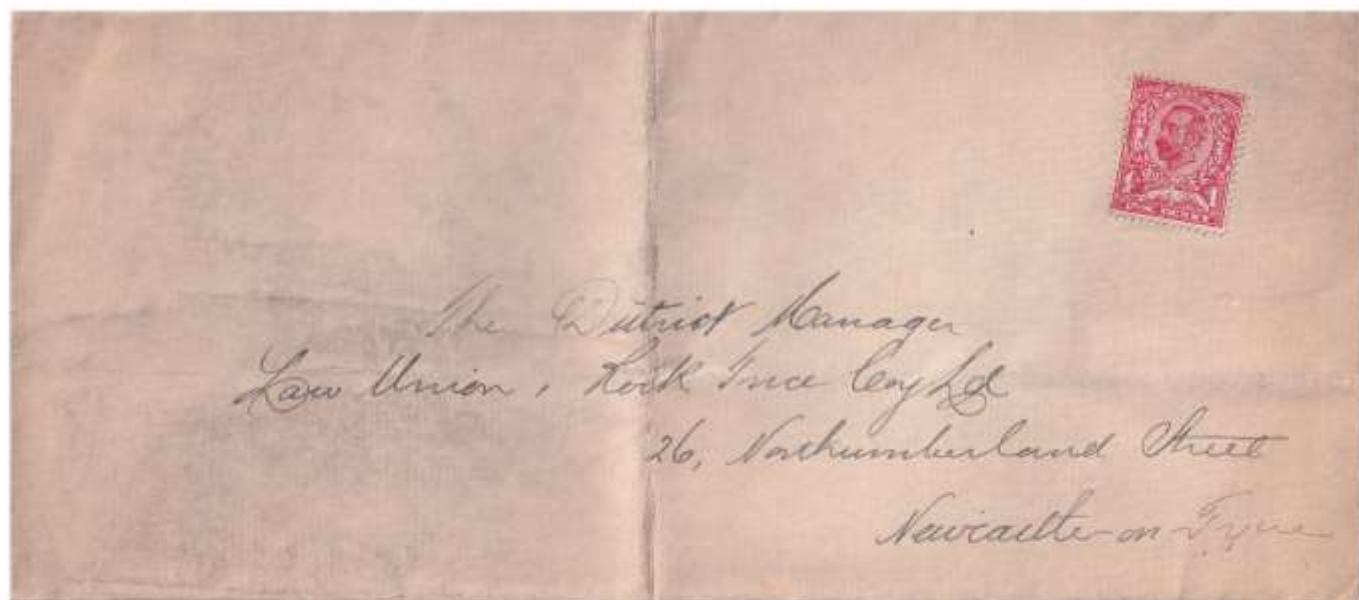 The District Manager
Law Union & Rock Insce Coy Ld
26, Northumberland Street
Newcastle-on-Tyne